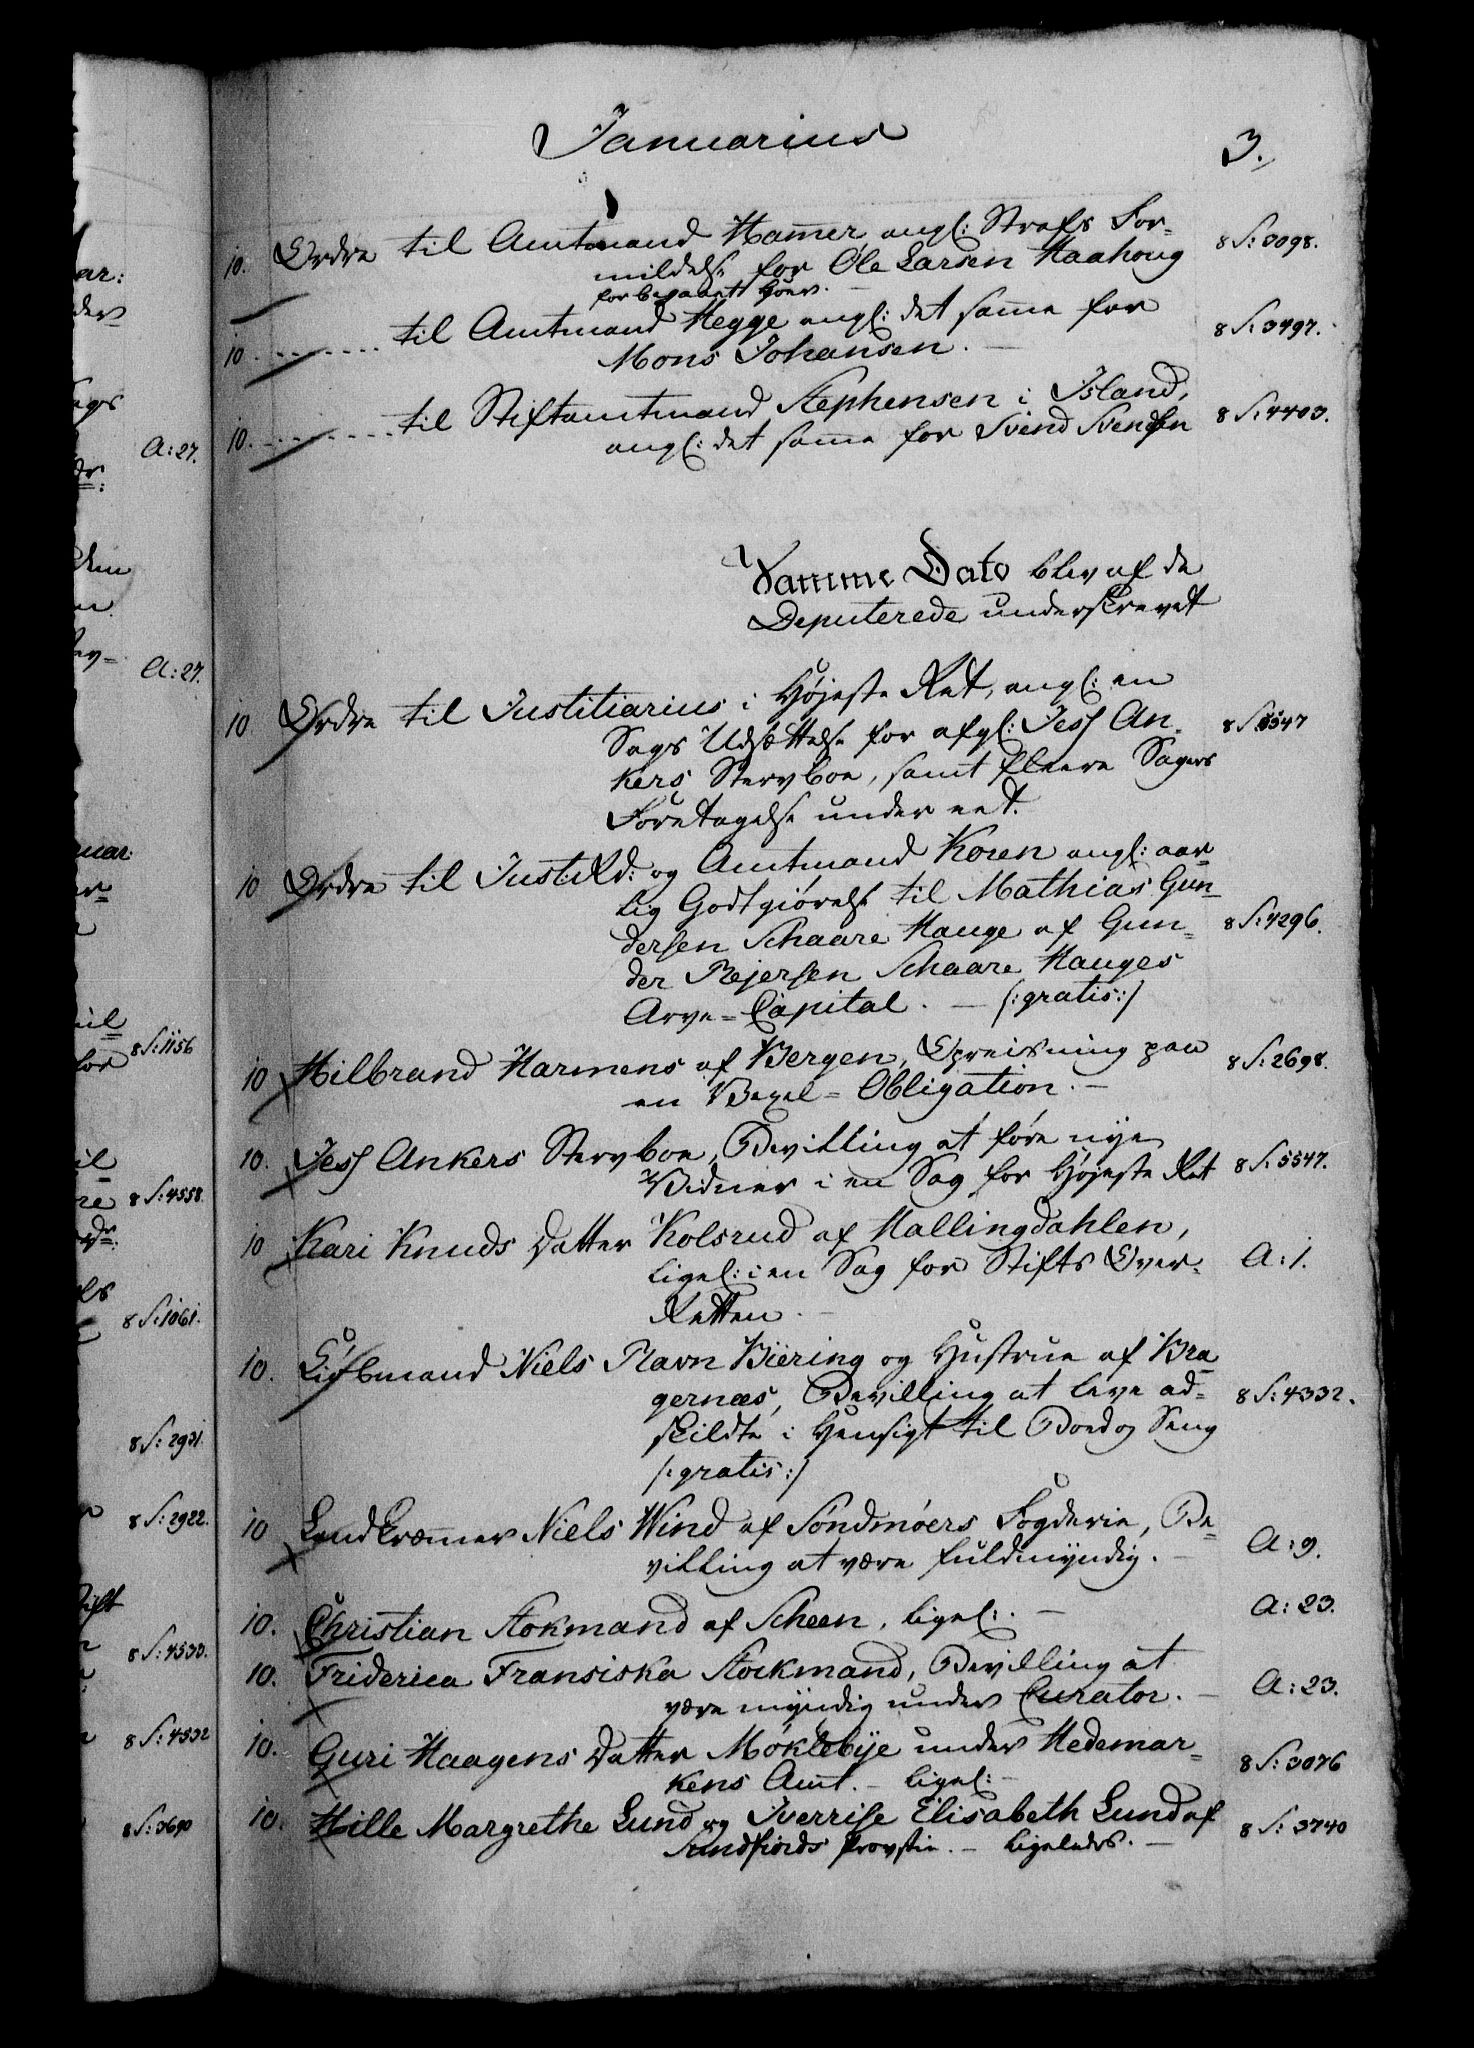 Januarius
3.
10. Ordre til Amtmand Hamer, angl: Strafs For=
mildelse for Ole Larsen Haahoug 8 S: 3098.
for begaaett Hoer.
10. - - - - til Amtmand Hegge angl: det same for
Mons Johansen. — 8 S: 3497.
10. - - - - til Stiftamtmand Stephensen i Island,
angl: det same for Svend Svendsen 8 S: 4403.
Samme Dato blev af de
Deputerede underskrevet
10 Ordre til Justitiarius i Højeste Ret, angl: en
Sags Udsættelse for afgl: Jess An- 8 S: 5547
kers Stervboe, samt fleere Sagers
Foretagelse under eet.
10 Ordre til Just: Rd: og Amtmand Koren angl: aar-
lig Godtgiørelse til Mathias Gun-
dersen Schaare Hauge af Gun= 8 S: 4296.
der Rejersen Schaare Hauges
Arve=Capital. — /:gratis:/
10 Hilbrand Harmens af Bergen, Opreisning paa 8 S: 2698.
en Vexel=Obligation. —
10. Jess Ankers Stervboe, Bevilling at føre nye
Vidner i en Sag for Højeste Ret 8 S: 5547.
10 Kari Knuds Datter Kolsrud af Hallingdahlen,
ligel: i en Sag for Stifts Over- A: 1.
Retten. —
10. Kiøbmand Niels Ravn Biering og Hustrue af Bra
gernæs, Bevilling at leve ad= 8 S: 4332.
skildte i Hensigt til Bord og Seng
/:gratis:/
10 Landkræmer Niels Wind af Søndmøers Fogderie, Be=
villing at være fuldmyndig. — A: 9.
10. Christian Stokmand af Scheen, ligel:. — A: 23.
10. Friderica Fransiska Stockmand, Bevilling at
være myndig under Curator. — A: 23.
10. Guri Haagens Datter Møklebye under Hedemar=
kens Amt. — ligel: — 8 S: 3076
10. Hille Margrethe Lund og Iverrise Elisabeth Lund af
Sundfiords Provstie. — ligeledes. — 8 S: 3740
A: 27.
A: 27.
8 S: 1156
8 S: 4558.
8 S: 1061.
8 S: 2931.
8 S: 2922.
8 S: 4530.
8 S: 4532
8 S: 3690